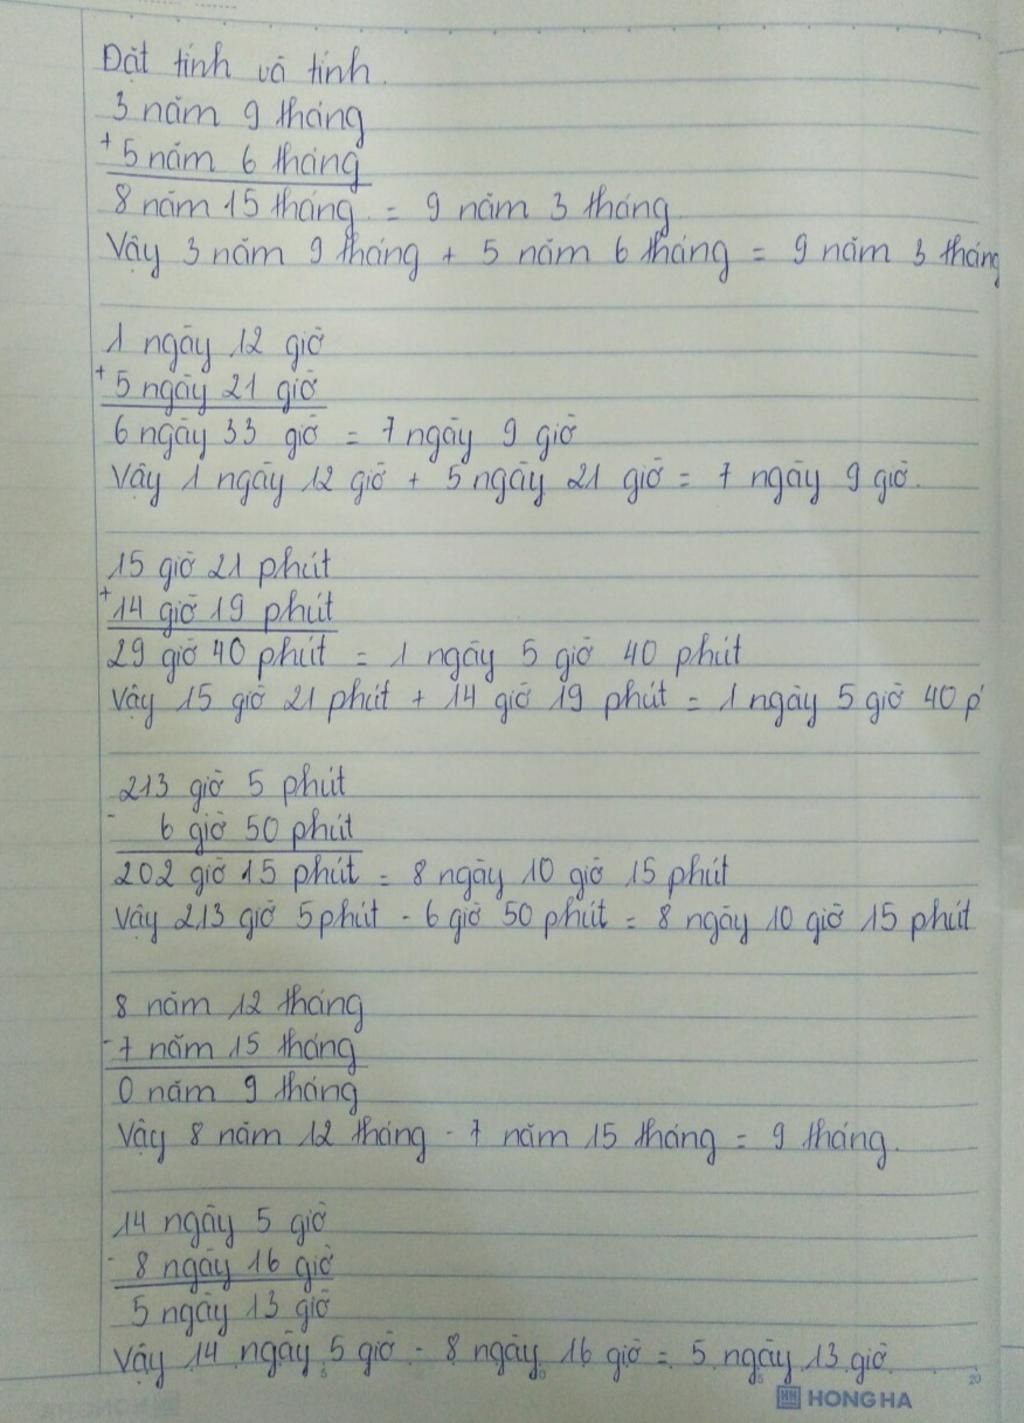 Đặt tính và tính.
3 năm 9 tháng
+
5 năm 6 tháng
8 năm 15 tháng = 9 năm 3 tháng
Vậy 3 năm 9 tháng + 5 năm 6 tháng = 9 năm 3 tháng
1 ngày 12 giờ
+
5 ngày 21 giờ
6 ngày 33 giờ = 7 ngày 9 giờ
Vậy 1 ngày 12 giờ + 5 ngày 21 giờ = 7 ngày 9 giờ.
15 giờ 21 phút
+
14 giờ 19 phút
29 giờ 40 phút = 1 ngày 5 giờ 40 phút
Vậy 15 giờ 21 phút + 14 giờ 19 phút = 1 ngày 5 giờ 40 p'
213 giờ 5 phút
-
6 giờ 50 phút
202 giờ 15 phút = 8 ngày 10 giờ 15 phút
Vậy 213 giờ 5 phút - 6 giờ 50 phút = 8 ngày 10 giờ 15 phút
8 năm 12 tháng
-
7 năm 15 tháng
0 năm 9 tháng
Vậy 8 năm 12 tháng - 7 năm 15 tháng = 9 tháng.
14 ngày 5 giờ
-
8 ngày 16 giờ
5 ngày 13 giờ
Vậy 14 ngày 5 giờ - 8 ngày 16 giờ = 5 ngày 13 giờ
HONG HA